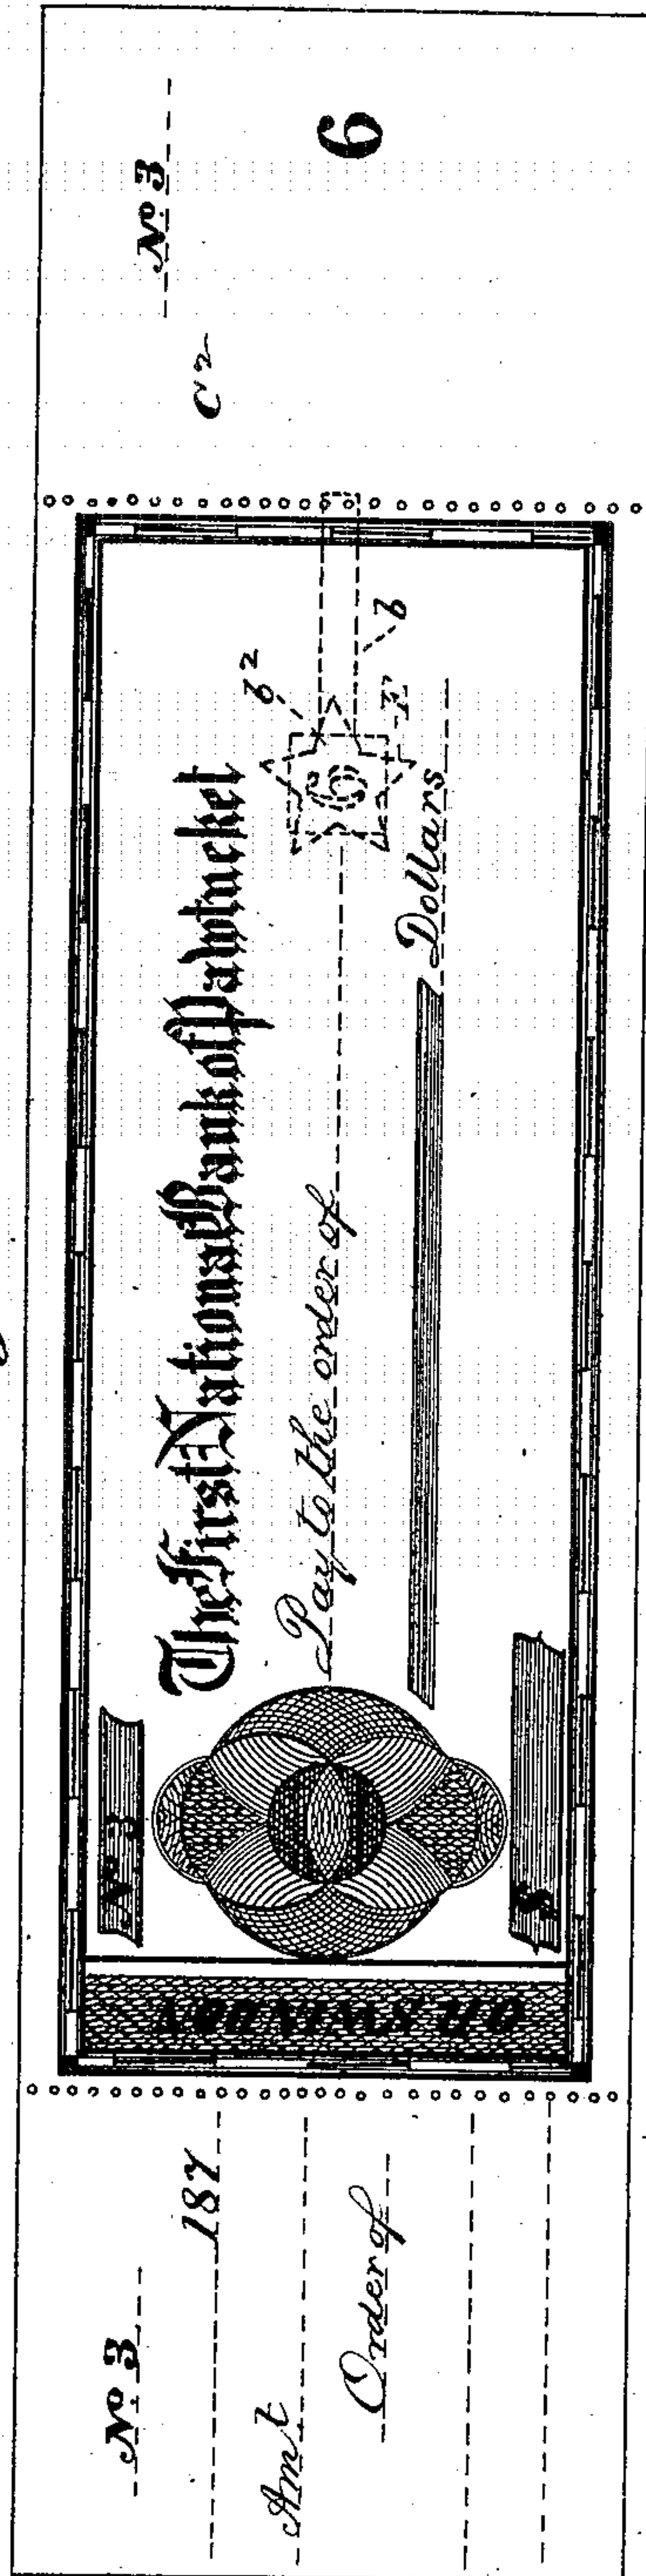 No 3
187
Amt
Order of
No 3
$
The First National Bank of Pawtucket
Pay to the order of
Dollars
6
b2
b
F
No 3
C2
6